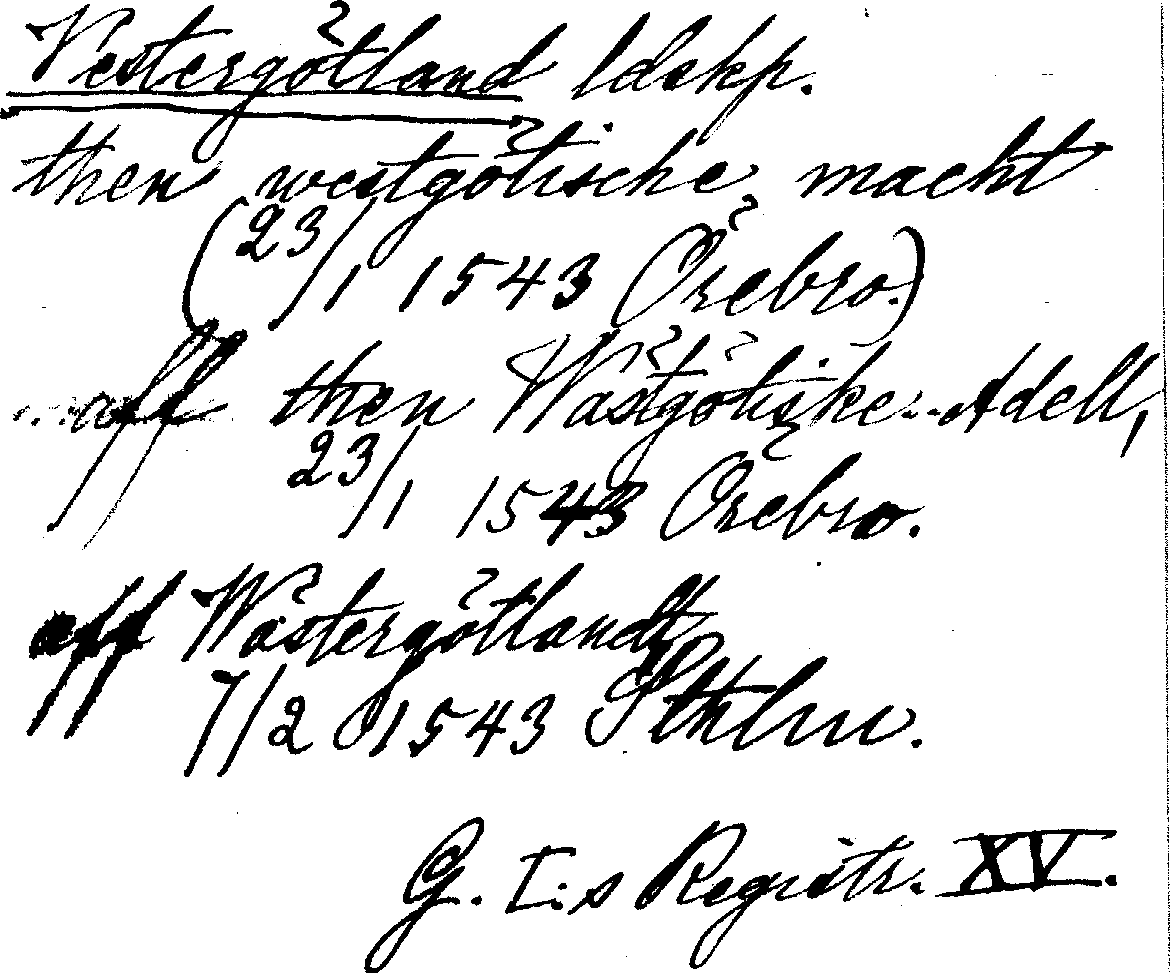 Vestergötland ldskp.
then westgötische macht
(23/1 1543 Örebro.)
aff then Wästgötiske Adell,
23/1 1543 Örebro.
aff Wästergötlandt
7/2 1543 Sthlm.
G. I:s Registr. XV.